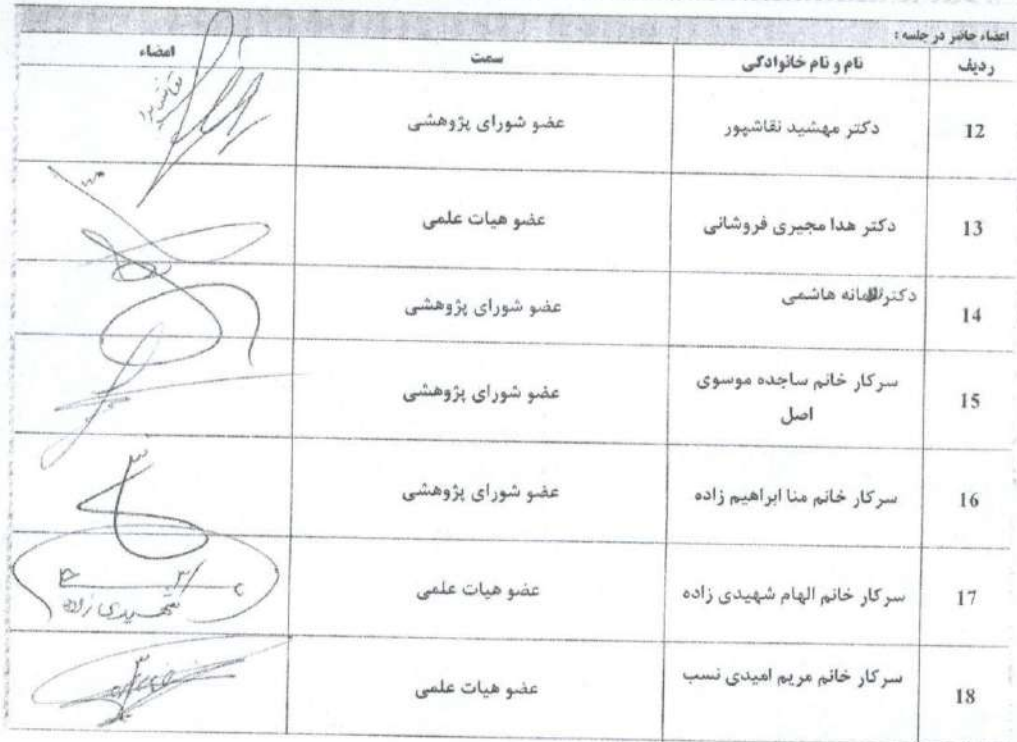 اعضاء حاضر در جلسه :
ردیف نام و نام خانوادگی سمت امضاء
12 دکتر مهشید نقاشپور عضو شورای پژوهشی
13 دکتر هدا مجیری فروشانی عضو هیات علمی
14 دکتر هاشمی عضو شورای پژوهشی
15 سرکار خانم ساجده موسوی
اصل عضو شورای پژوهشی
16 سرکار خانم منا ابراهیم زاده عضو شورای پژوهشی
17 سرکار خانم الهام شهیدی زاده عضو هیات علمی
شهیدی زاده
18 سرکار خانم مریم امیدی نسب عضو هیات علمی